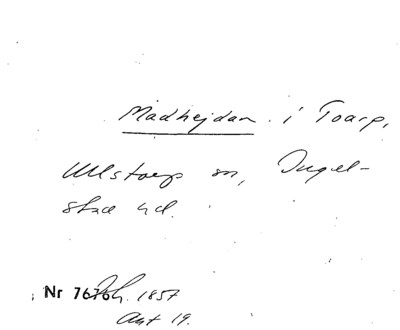 Madhejdan i Toarp,
Ullstorps sn, Ingel-
stad hd.
Nr 7676 1857
Akt 19.